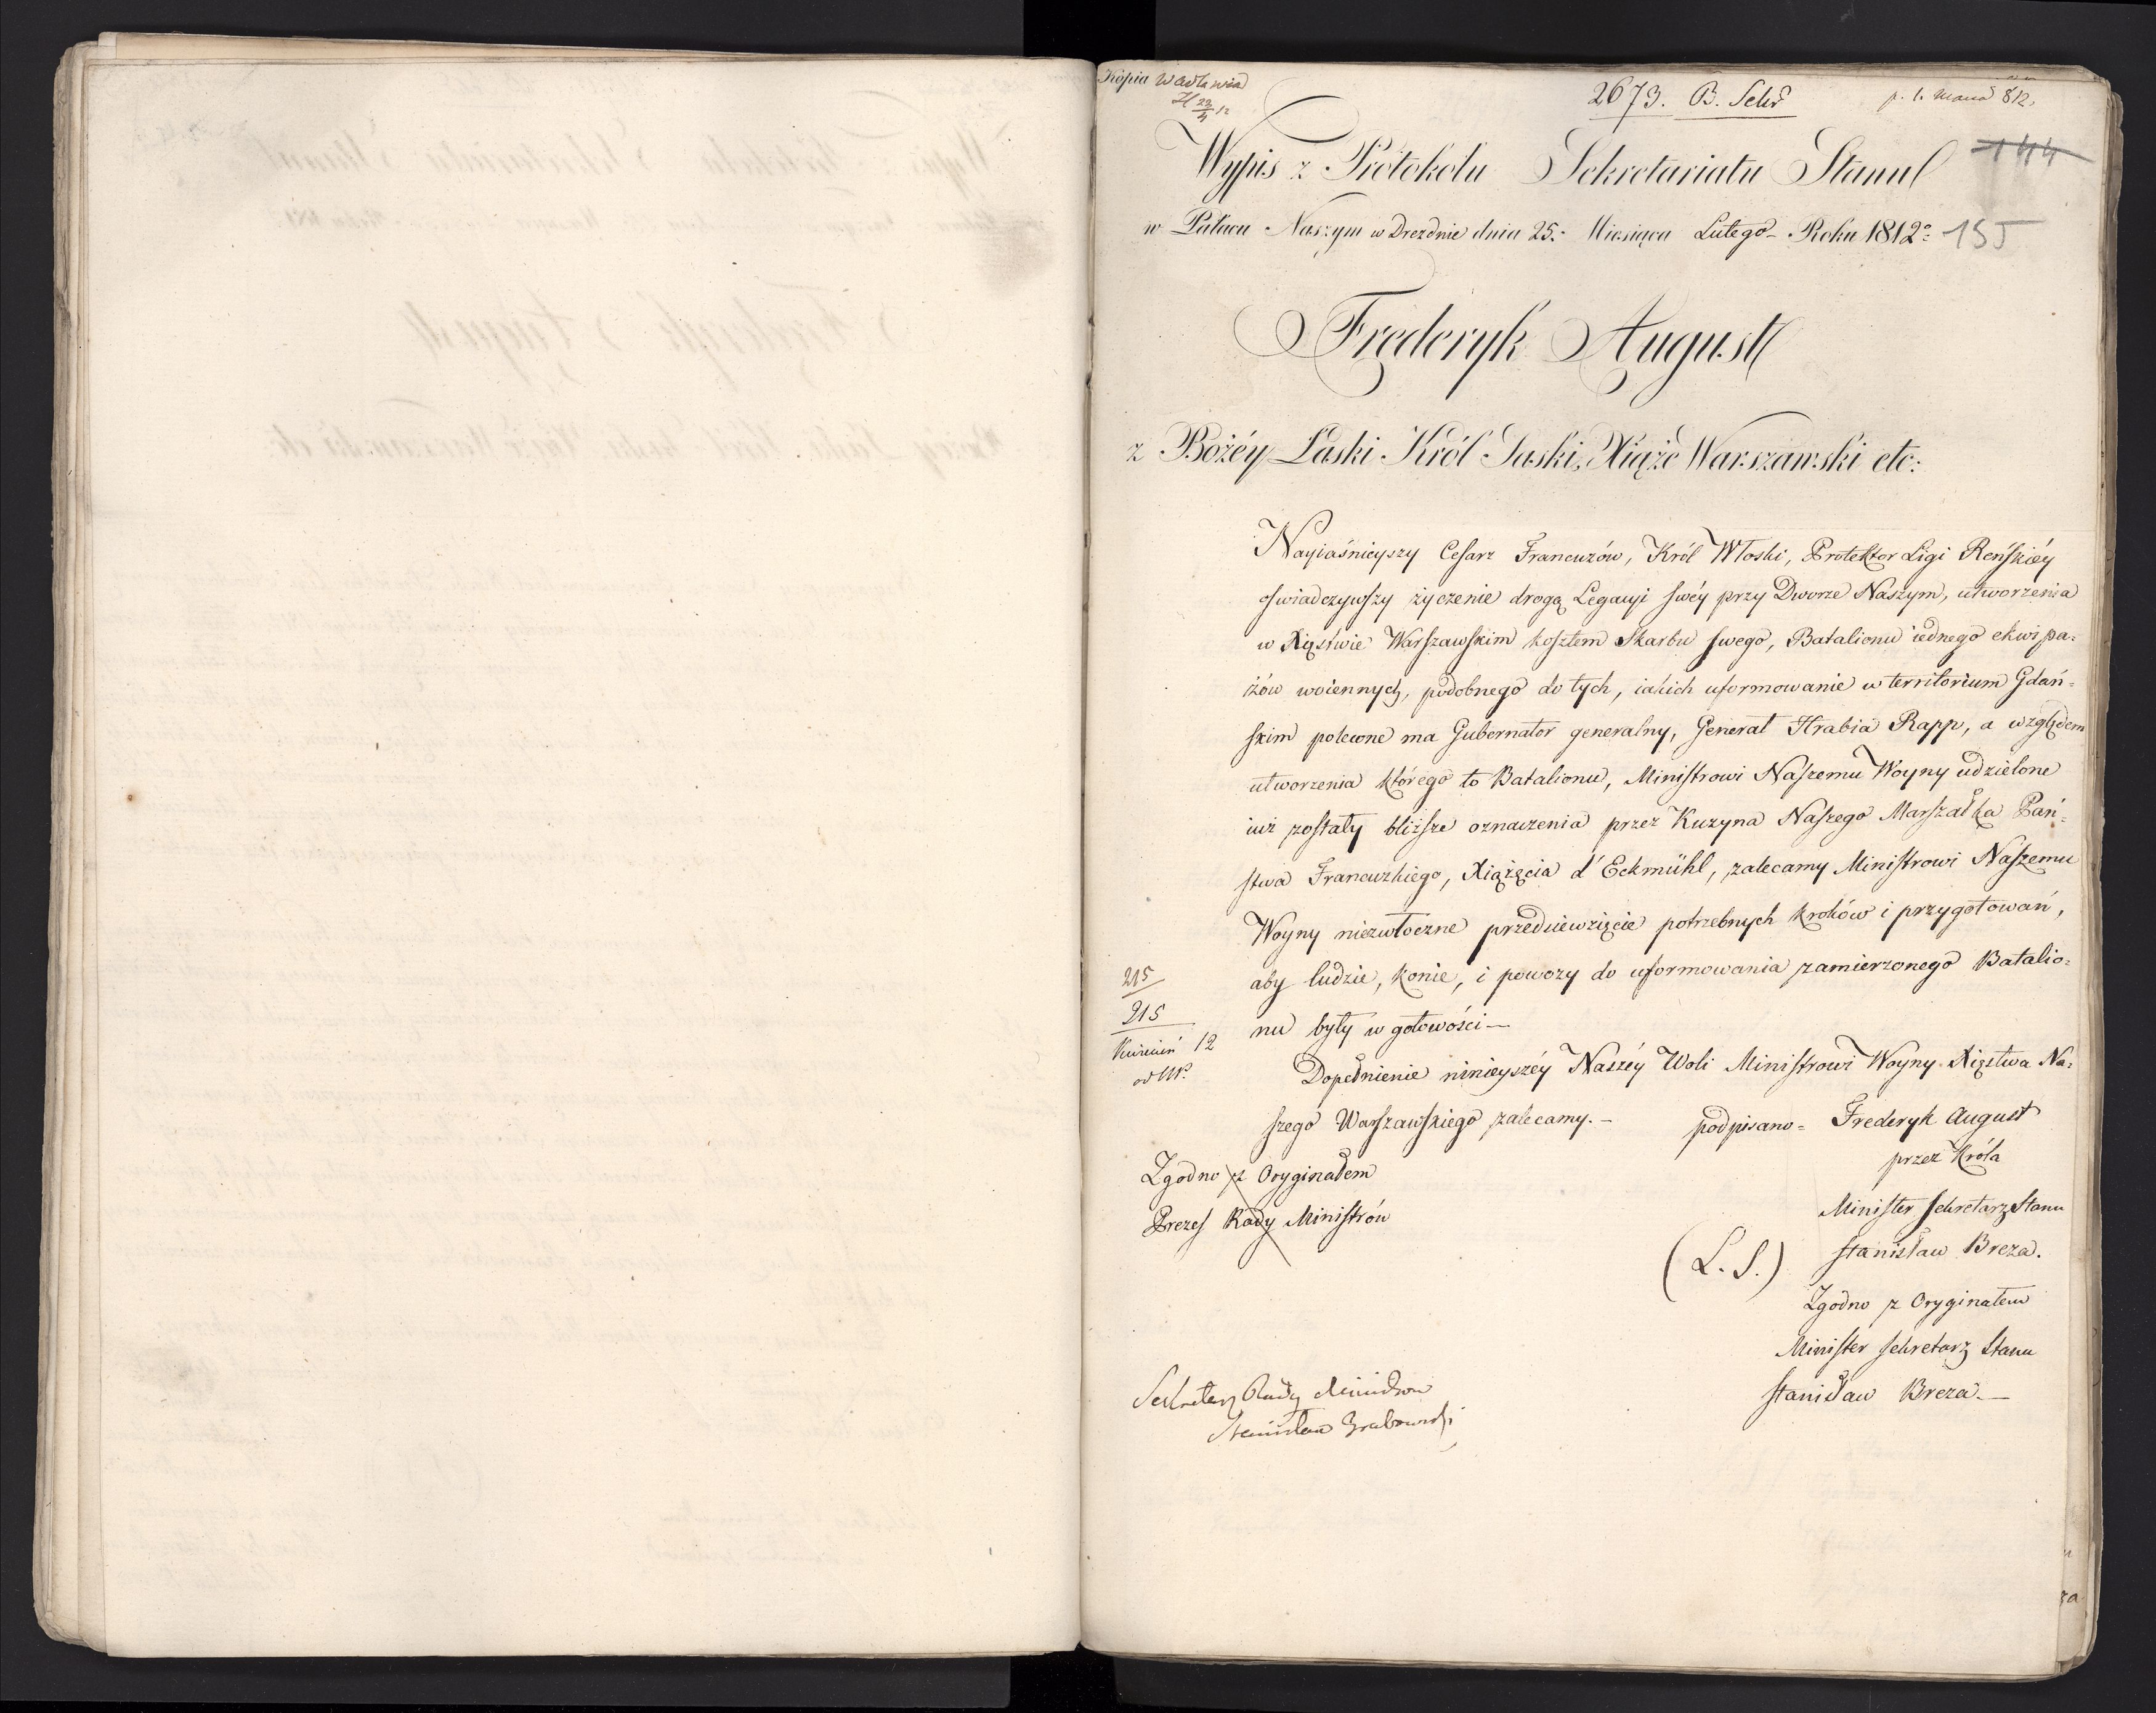 Kopia
2673. B. Sekr
p. 1. Marca 812.
Wypis z Protokołu Sekretariatu Stanu
144
w Pałacu Naszym w Dreźdnie dnia 25. Miesiąca Lutego Roku 1812
155
Frederyk August
z Bożéy Łaski Król Saski, Xiąże Warszawski etc:
Nayiaśnieyszy Cesarz Francuzów, Król Włoski, Protektor Ligi Reńskiéy
oświadczywszy życzenie drogą Legacyi swéy przy Dworze Naszym, utworzenia
w Xięstwie Warszawskim kosztem Skarbu swego, Batalionu iednego ekwipa=
żów woiennych, podobnego do tych, iakich uformowanie w territorium Gdań=
skim polecone ma Gubernator generalny, Generał Hrabia Rapp, a względem
utworzenia którego to Batalionu, Ministrowi Naszemu Woyny udzielone
iuż zostały bliższe oznaczenia przez Kuzyna Naszego Marszałka Pań=
stwa Francuzkiego, Xiążęcia d'Eckmühl, zalecamy Ministrowi Naszemu
Woyny niezwłoczne przedsiewzięcie potrzebnych kroków i przygotowań,
aby ludzie, konie, i powozy do uformowania zamierzonego Batalio=
nu były w gotowości —
215
215
Kwiecień 12
Dopełnienie ninieyszéy Naszéy Woli Ministrowi Woyny Xięstwa Na=
szego Warszawskiego zalecamy. —
podpisano = Frederyk August
przez Króla
Minister Sekretarz Stanu
(L. S.) Stanisław Breza.
Zgodno z Oryginałem
Minister Sekretarz Stanu
Stanisław Breza. —
Zgodno z Oryginałem
Prezes Rady Ministrów
Sekretarz Rady Ministrów
Stanisław Grabowski